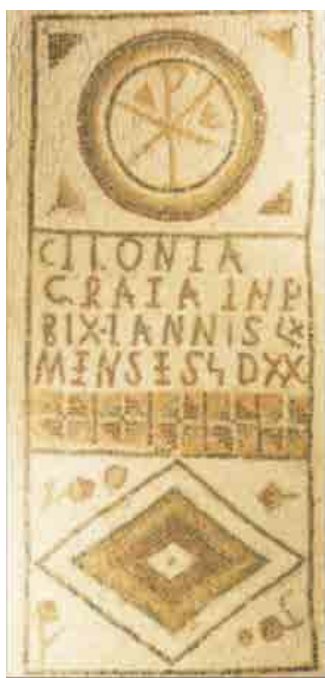 CILONIA
GRATA INP
BIXIT ANNIS LX
MENSES Ϛ DXX